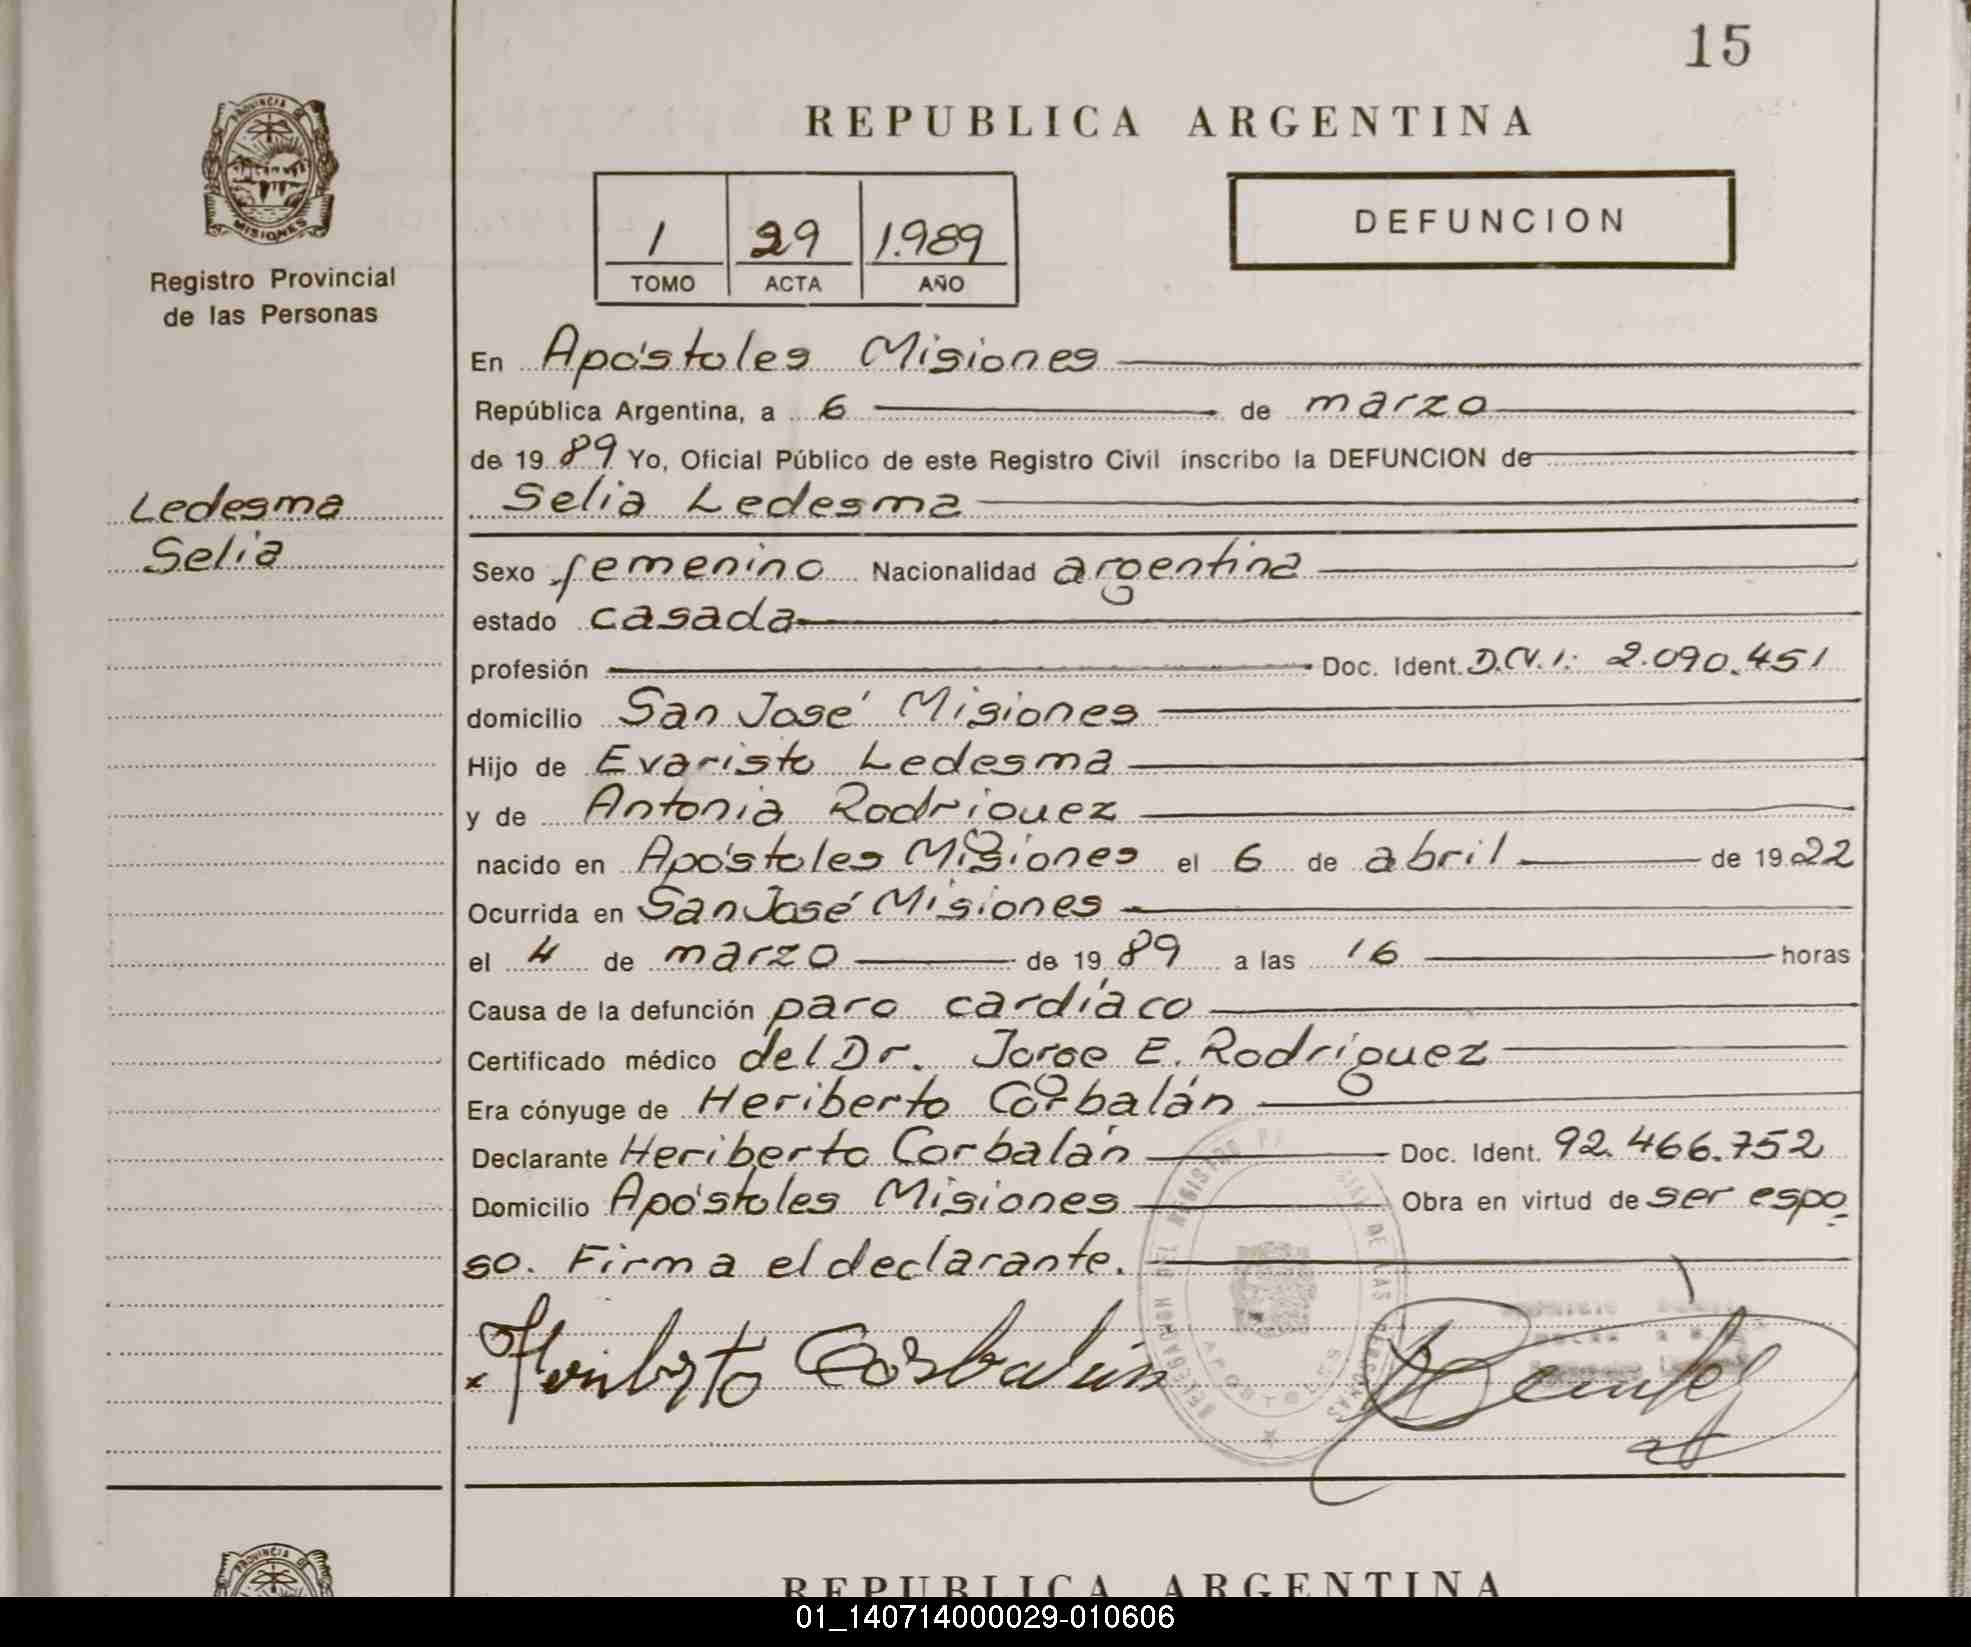 15
REPUBLICA ARGENTINA
PROVINCIA DE
MISIONES
Registro Provincial
de las Personas
1 29 1.989
TOMO ACTA AÑO
DEFUNCION
En Apóstoles Misiones
República Argentina, a 6 de marzo
de 19 89 Yo, Oficial Público de este Registro Civil inscribo la DEFUNCION de
Ledesma
Selia
Selia Ledesma
Sexo femenino Nacionalidad argentina
estado casada
profesión Doc. Ident. D.N.I: 2.090.451
domicilio San José Misiones
Hijo de Evaristo Ledesma
y de Antonia Rodriguez
nacido en Apóstoles Misiones el 6 de abril de 19 22
Ocurrida en San José Misiones
el 4 de marzo de 19 89 a las 16 horas
Causa de la defunción paro cardíaco
Certificado médico del Dr. Jorge E. Rodríguez
Era cónyuge de Heriberto Corbalán
Declarante Heriberto Corbalán Doc. Ident. 92.466.752
Domicilio Apóstoles Misiones Obra en virtud de ser espo
so. Firma el declarante.
Heriberto Corbalán
DELEGACION DEL REGISTRO DE LAS PERSONAS
APOSTOLES
PROVINCIA DE
REPUBLICA ARGENTINA
01_140714000029-010606